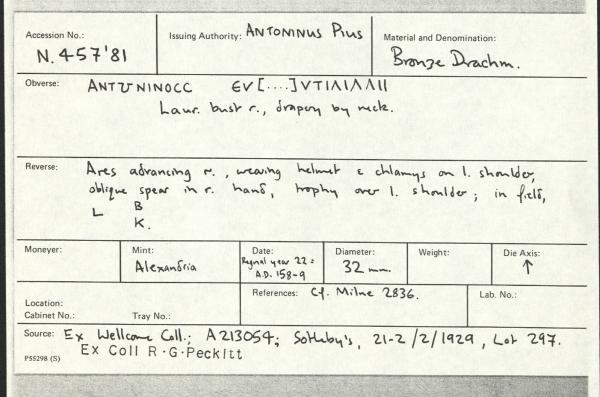 Accession No.: N.457'81
Issuing Authority: ANTONINUS PIUS
Material and Denomination: Bronze Drachm.
Obverse: ANTѠNINOCC ЄV[....]VTIΛIΛΛII
Laur. bust r., drapery by neck.
Reverse: Ares advancing r., wearing helmet & chlamys on l. shoulder,
oblique spear in r. hand, trophy over l. shoulder; in field,
L B
K.
Moneyer:
Mint: Alexandria
Date: Regnal year 22 = A.D. 158-9
Diameter: 32 mm.
Weight:
Die Axis: ↑
Location:
Cabinet No.: Tray No.:
References: Cf. Milne 2836.
Lab. No.:
Source: Ex Wellcome Coll.; A213054; Sotheby's, 21-2/2/1929, Lot 297.
Ex Coll R.G.Peckitt
P55298 (S)